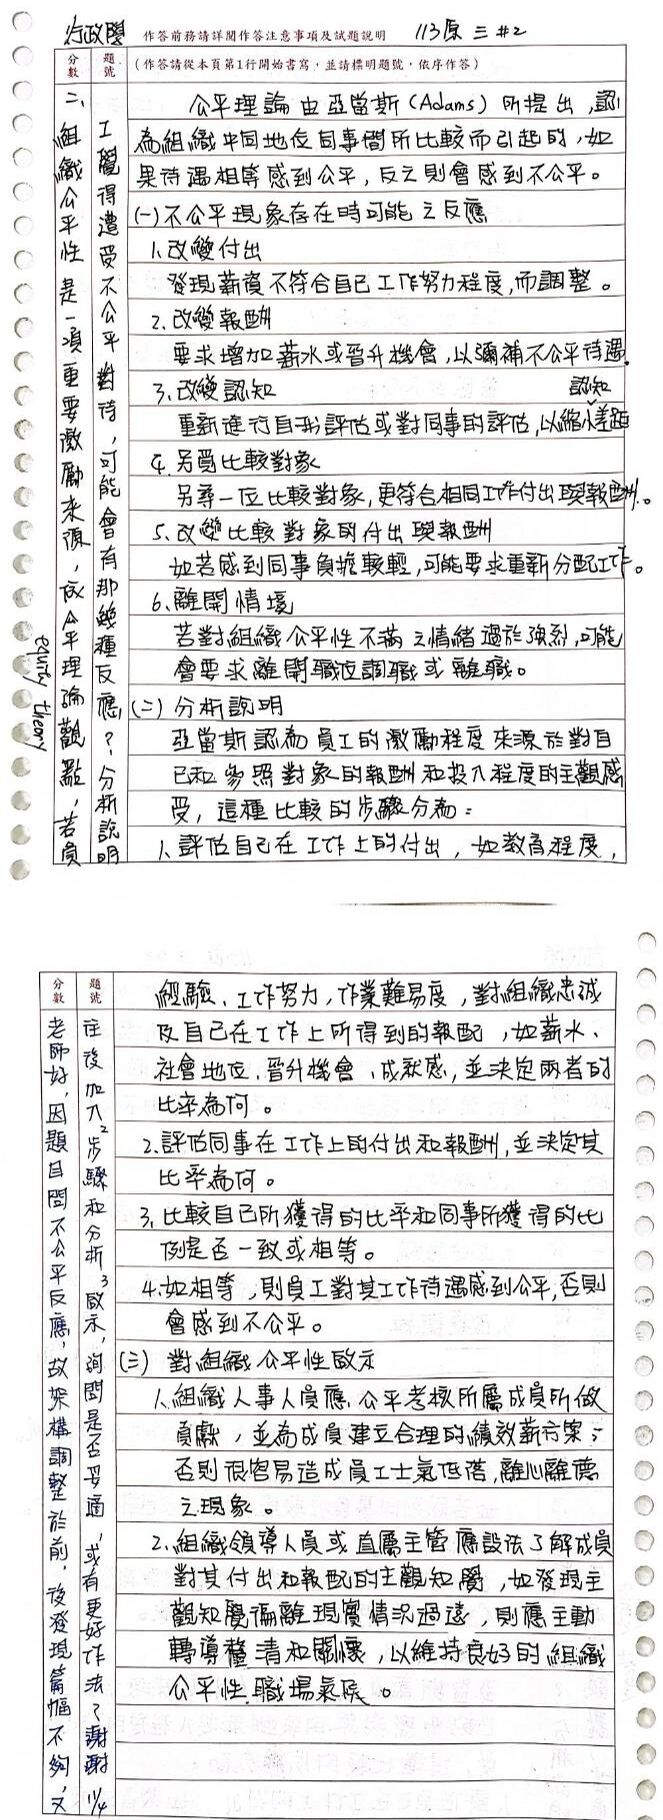 行政學 作答前務請詳閱作答注意事項及試題說明 113原三#2
分數 題號 (作答請從本頁第1行開始書寫，並請標明題號，依序作答)
二、組織公平性是一項重要激勵來源，依公平理論觀點，若員
equity theory
工覺得遭受不公平對待，可能會有那幾種反應？分析說明
公平理論由亞當斯(Adams)所提出，認
為組織中同地位同事間所比較而引起的，如
果待遇相等感到公平，反之則會感到不公平。
(一)不公平現象存在時可能之反應
1.改變付出
發現薪資不符合自己工作努力程度，而調整。
2.改變報酬
要求增加薪水或晉升機會，以彌補不公平待遇。
3.改變認知
重新進行自我評估或對同事的評估，以縮小認知差距
4.另覓比較對象
另尋一位比較對象，更符合相同工作付出與報酬。
5.改變比較對象的付出與報酬
如若感到同事負擔較輕，可能要求重新分配工作。
6.離開情境
若對組織公平性不滿之情緒過於強烈，可能
會要求離開職位調職或離職。
(二)分析說明
亞當斯認為員工的激勵程度來源於對自
己和參照對象的報酬和投入程度的主觀感
受，這種比較的步驟分為：
1.評估自己在工作上的付出，如教育程度，
分數 題號
老師好，因題目問不公平反應，故架構調整於前，後發現篇幅不夠，又
往後加入2步驟和分析3啟示，詢問是否妥適，或有更好作法？謝謝 11/4
經驗、工作努力，作業難易度，對組織忠誠
及自己在工作上所得到的報配，如薪水、
社會地位、晉升機會、成就感，並決定兩者的
比率為何。
2.評估同事在工作上的付出和報酬，並決定其
比率為何。
3.比較自己所獲得的比率和同事所獲得的比
例是否一致或相等。
4.如相等，則員工對其工作待遇感到公平，否則
會感到不公平。
(三)對組織公平性啟示
1.組織人事人員應公平考核所屬成員所做
貢獻，並為成員建立合理的績效薪方案；
否則很容易造成員工士氣低落，離心離德
之現象。
2.組織領導人員或直屬主管應設法了解成員
對其付出和報配的主觀知覺，如發現主
觀知覺偏離現實情況過遠，則應主動
轉導釐清和關懷，以維持良好的組織
公平性職場氣候。